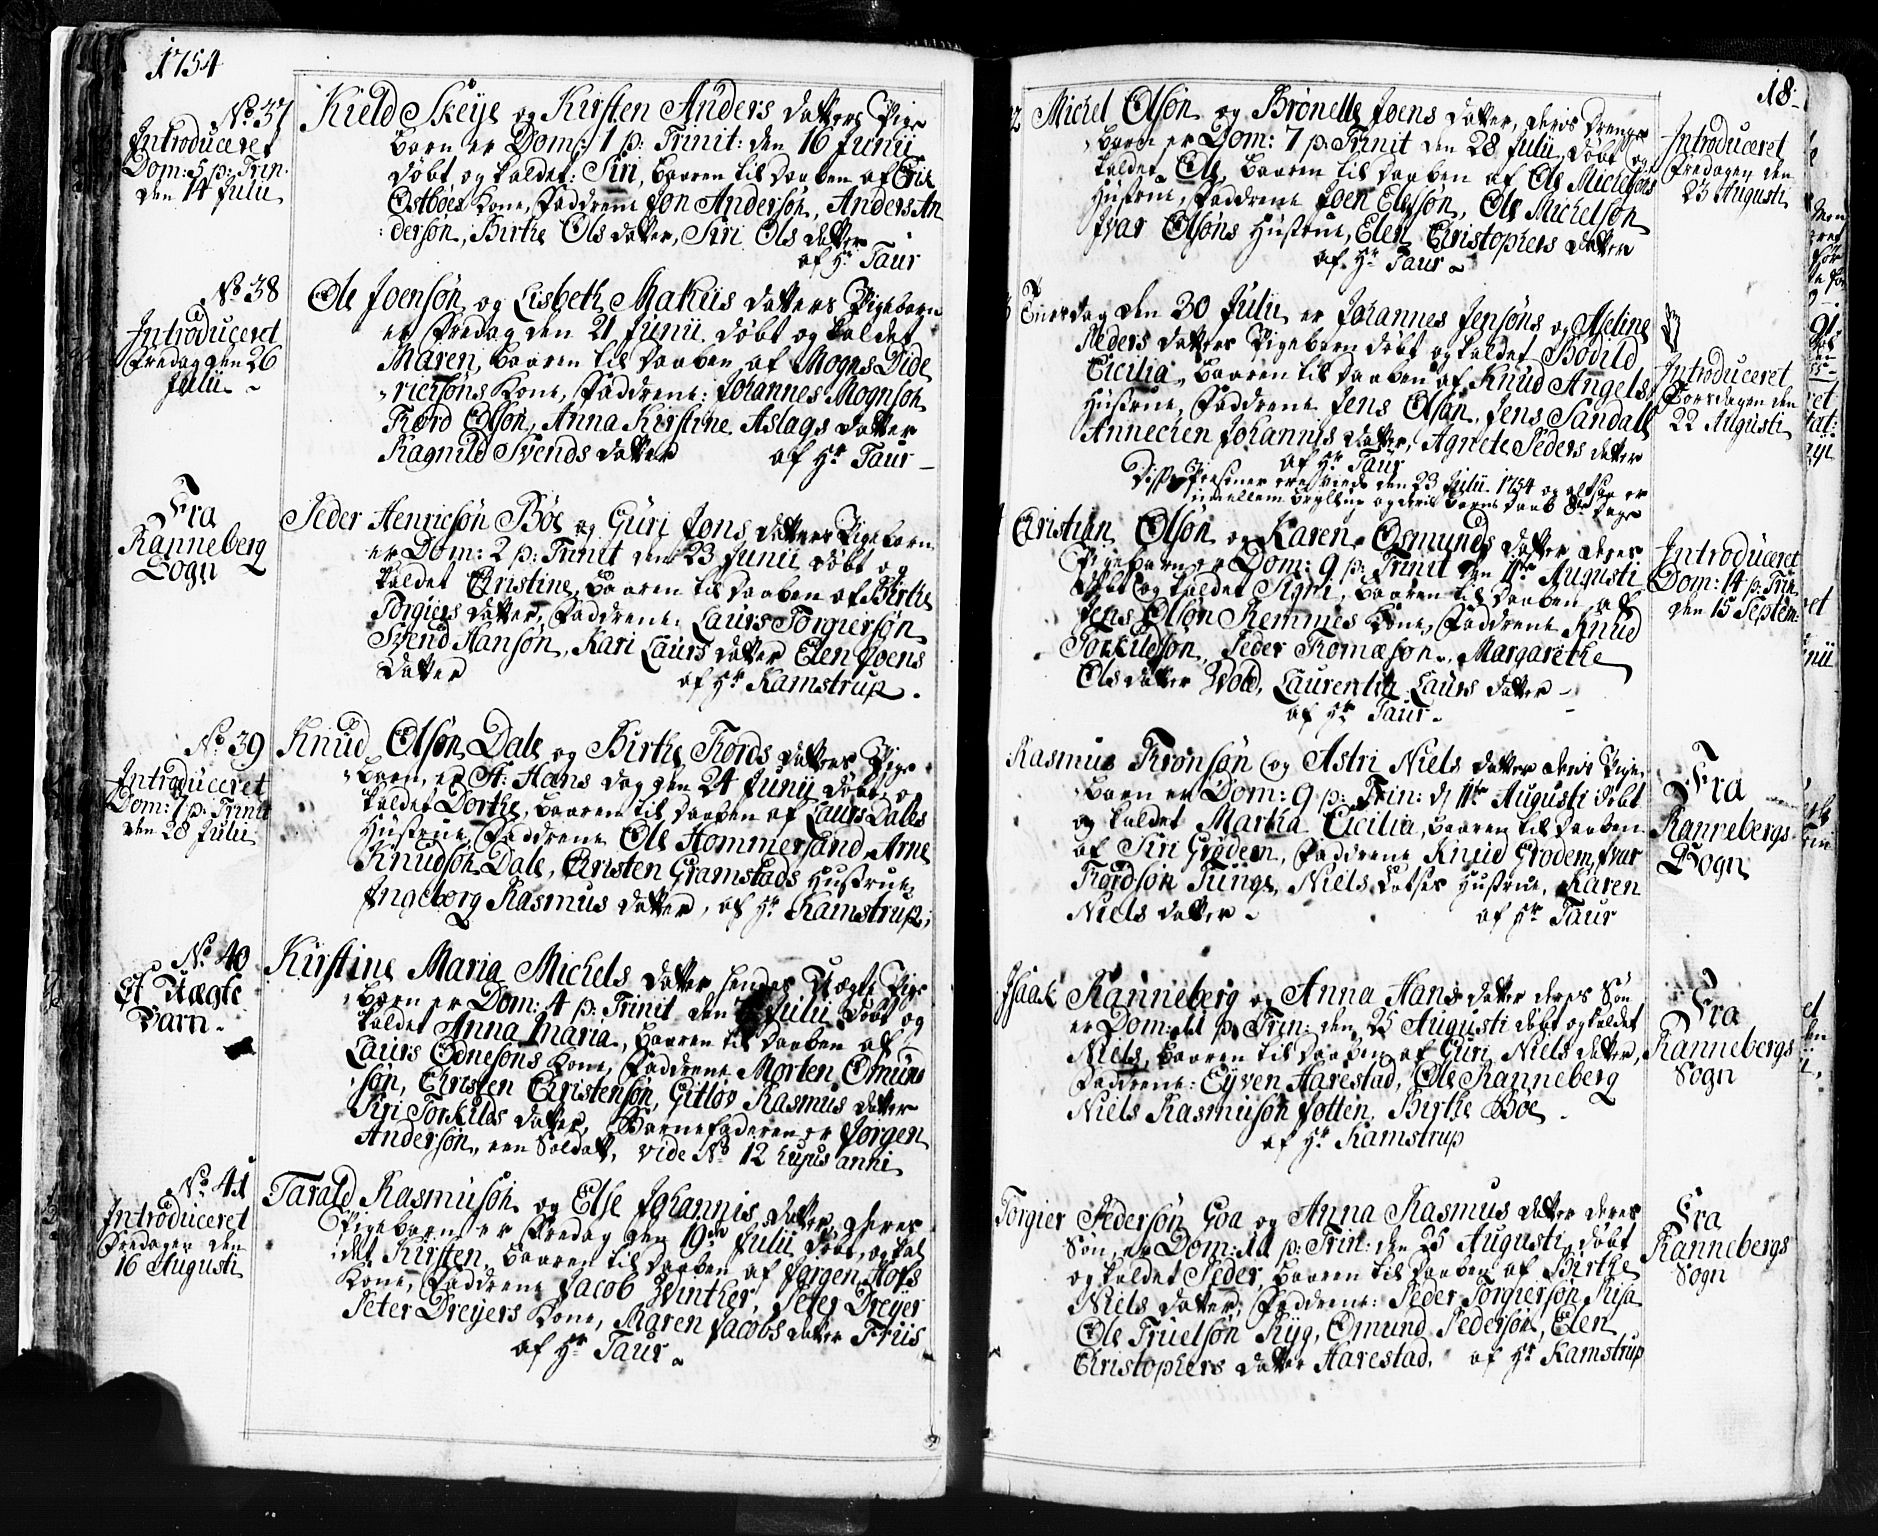 1754
No 37
Introduceret
Dom: 5 p: Trin.
den 14 Julii
Kield Skeye og Kirsten Anders datters Pige
barn er Dom: 1 p: Trinit: den 16 Junii
døbt og kaldet: Siri, baaren til daaben af Erik
Østbøes Kone, Faddrene Jon Andersøn, Anders An
dersøn, Birthe Ols datter, Siri Ols datter
af Hr Taur
No 38
Introduceret
Fredag den 26
Julii
Ole Joensøn og Lisbeth Makiis datters Pigebarn
er Fredag den 21 Junii døbt og kaldet
Maren, baaren til daaben af Mogns Dide
ricksøns Kone, Faddrene: Johannes Mognsøn
Tord Olsøn, Anna Kirstine Aslags datter
Ragnild Svends datter af Hr Taur
Fra
Ranneberg
Sogn
Peder Henricsøn Bøe og Guri Jons datters Pigebarn
er Dom: 2 p: Trinit den 23 Junii døbt og
kaldet Christine, baaren til daaben af Birthe
Torgiers datter, Faddrene: Laurs Torgiersøn
Svend Hansøn, Kari Laurs datter Elen Joens
datter af Hr Kamstrup
No 39
Introduceret
Dom: 7 p: Trinit
den 28 Julii
Knud Olsøn Dale og Birthe Tords datters Pige
barn, er St: Hans dag den 24 Junii døbt og
kaldet Dorthe, baaren til daaben af Laurs Dales
Hustrue, Faddrene Ole Hommersand Arne
Knudsøn Dale, Christen Gramstads Hustrue
Ingeborg Rasmus datter, af Hr Kamstrup
No 40
Et Uægte
Barn
Kirstine Maria Michels datter hendes Uægte Pige
barn er Dom: 4 p: Trinit den 7 Julii døbt og
kaldet Anna Maria, baaren til daaben af
Laurs Ednesøns Kone, Faddrene Morten Omund
søn, Christen Christensøn, Gitløv Rasmus datter
Siri Torkilds datter, Barnefaderen er Jørgen
Andersøn, een Soldatt, vide No 12 hujus anni
No 41
Introduceret
Fredagen den
16 Augusti
Tarald Rasmusøn og Else Johannis datter, deres
Pigebarn er Fredag den 19de Julii døbt og kal
det Kirsten, baaren til daaben af Jørgen Hofs
Kone, Faddrene Jacob Winther, Peter Dreyer
Peter Dreyers Kone, Maren Jacobs datter Friis
af Hr Taur
18
Michel Olsøn og Brønelle Joens datter, deris Drenge
barn er Dom: 7 p: Trinit den 28 Julii døbt og
kaldet Ole, baaren til daaben af Ole Michelsøns
Hustrue, Faddrene Joen Elefsøn, Ole Michelsøn
Ivar Olsøns Hustrue, Elen Christophers datter
af Hr Taur
Introduceret
Fredagen den
23 Augusti
Tiirsdag den 30 Julii er Johannes Jensøns og Aseline
Peders datters Pigebarn døbt og kaldet Bodild
Cicilia, baaren til daaben af Knud Angels
Hustrue, Faddrene Jens Olsøn, Jens Sandall
Annechen Johannis datter, Agnete Peders datter
af Hr Taur
Disse Personer ere viede den 23 Julii 1754 og altsaa er
imellem bryllup og deris barns daab 8te dage
Introduceret
Torsdagen den
22 Augusti
Christian Olsøn og Karen Osmunds datter deres
Pigebarn er Dom: 9 p: Trinit den 11te Augusti
døbt og kaldet Signi, baaren til daaben af
Jens Olsøn Remmes Kone, Faddrene Knud
Torkildsøn, Peder Tomæsøn, Margarethe
Ols datter Wold, Laurentia Laurs datter
af Hr Taur
Introduceret
Dom: 14 p: Trin
den 15 Septem:
Rasmus Trønsøn og Astri Niels datter deris Pige
barn er Dom: 9 p: Trin: d 11te Augusti døbt
og kaldet Martha Cicilia, baaren til daaben
af Siri Grødem, Faddrene Knud Grødem, Ivar
Tordsøn Tunge, Niels Hustrue, Karen
Niels datter af Hr Taur
Fra
Rannebergs
Sogn
Isaach Ranneberg og Anna Hans datter deres Søn
er Dom: 11 p: Trin: den 25 Augusti døbt og kaldet
Niels, baaren til daaben af Guri Niels datter,
Faddrene: Eyven Harestad, Ole Ranneberg
Niels Rasmusøn Føtten, Birthe Bøe
af Hr Kamstrup
Fra
Rannebergs
Sogn
Torgier Pedersøn Goa og Anna Rasmus datter deres
Søn, er Dom: 11 p: Trin: den 25 Augusti døbt
og kaldet Peder, baaren til daaben af Birthe
Niels datter, Faddrene: Peder Torgiersøn Risa
Ole Truelsøn Ryg, Omund Pedersøn, Elen
Christophers datter Harestad, af Hr Kamstrup
Fra
Rannebergs
Sogn